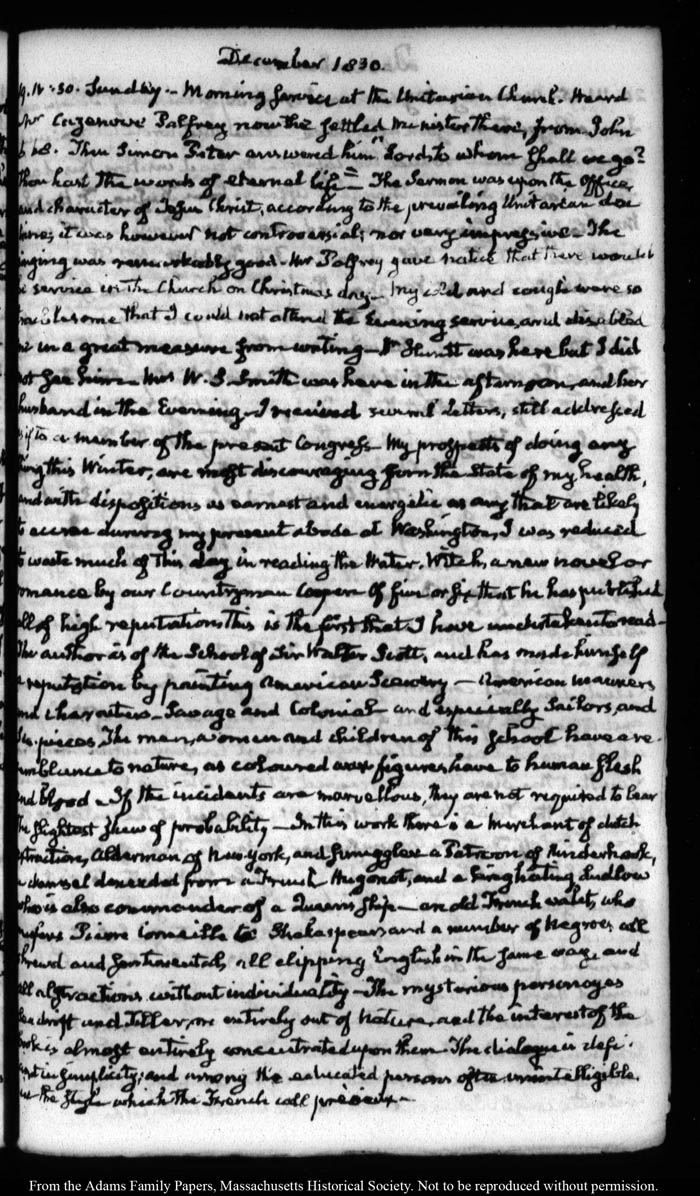 December 1830.
19. IV:30. Sunday. — Morning service at the Unitarian Church. Heard
Mr Cazenove Palfrey now the settled Minister there, from John
6 68. Then Simon Peter answered him, Lord to whom shall we go?
thou hast the words of eternal life — The Sermon was upon the Office
and character of Jesus Christ, according to the prevailing Unitarian doc
it was however not controversial; nor very impressive — The
singing was remarkably good — Mr Palfrey gave notice that there would
be service in the Church on Christmas day — My cold and cough were so
troublesome that I could not attend the Evening service, and disabled
me in a great measure from writing — Dr Huntt was here but I did
not see him — Mrs W. S. Smith was here in the afternoon, and her
husband in the Evening — I received several Letters, still addressed
as if to a member of the present Congress — My prospects of doing any
thing this Winter, are most discouraging from the state of my health,
and with dispositions as earnest and energetic as any that are likely
to accrue during my present abode at Washington, I was reduced
to waste much of this day in reading the Water-Witch, a new novel or
romance by our Countryman Cooper. Of five or six that he has published
all of high reputation, This is the first that I have undertaken to read —
The author is of the School of Sir Walter Scott, and has made himself
a reputation by painting American Scenery — American manners
and characters — Savage and Colonial and especially Sailors, and
Sea-pieces. The men, women and children of this School have a re-
semblance to nature, as coloured wax figures have to human flesh
and blood — If the incidents are marvellous, they are not required to bear
the slightest shew of probability — In this work there is a Merchant of dutch
extraction, Alderman of New-York, and smuggler a Patroon of Kinderhook,
a damsel descended from a French Hugonot, and a Ludlow
who is also commander of a Queens ship — an old French valet, who
prefers Pierre Corneille to Shakespear and a number of Negroes all
shrewd and sentimental, all clipping English in the same way, and
all abstractions without individuality — The mysterious personages
Seadrift and Tiller, are entirely out of Nature, and the interest of the
work is almost entirely concentrated upon them. The dialogue is defi-
cient in simplicity; and among the educated persons often unintelligible.
in the style which the French call précieux —
From the Adams Family Papers, Massachusetts Historical Society. Not to be reproduced without permission.